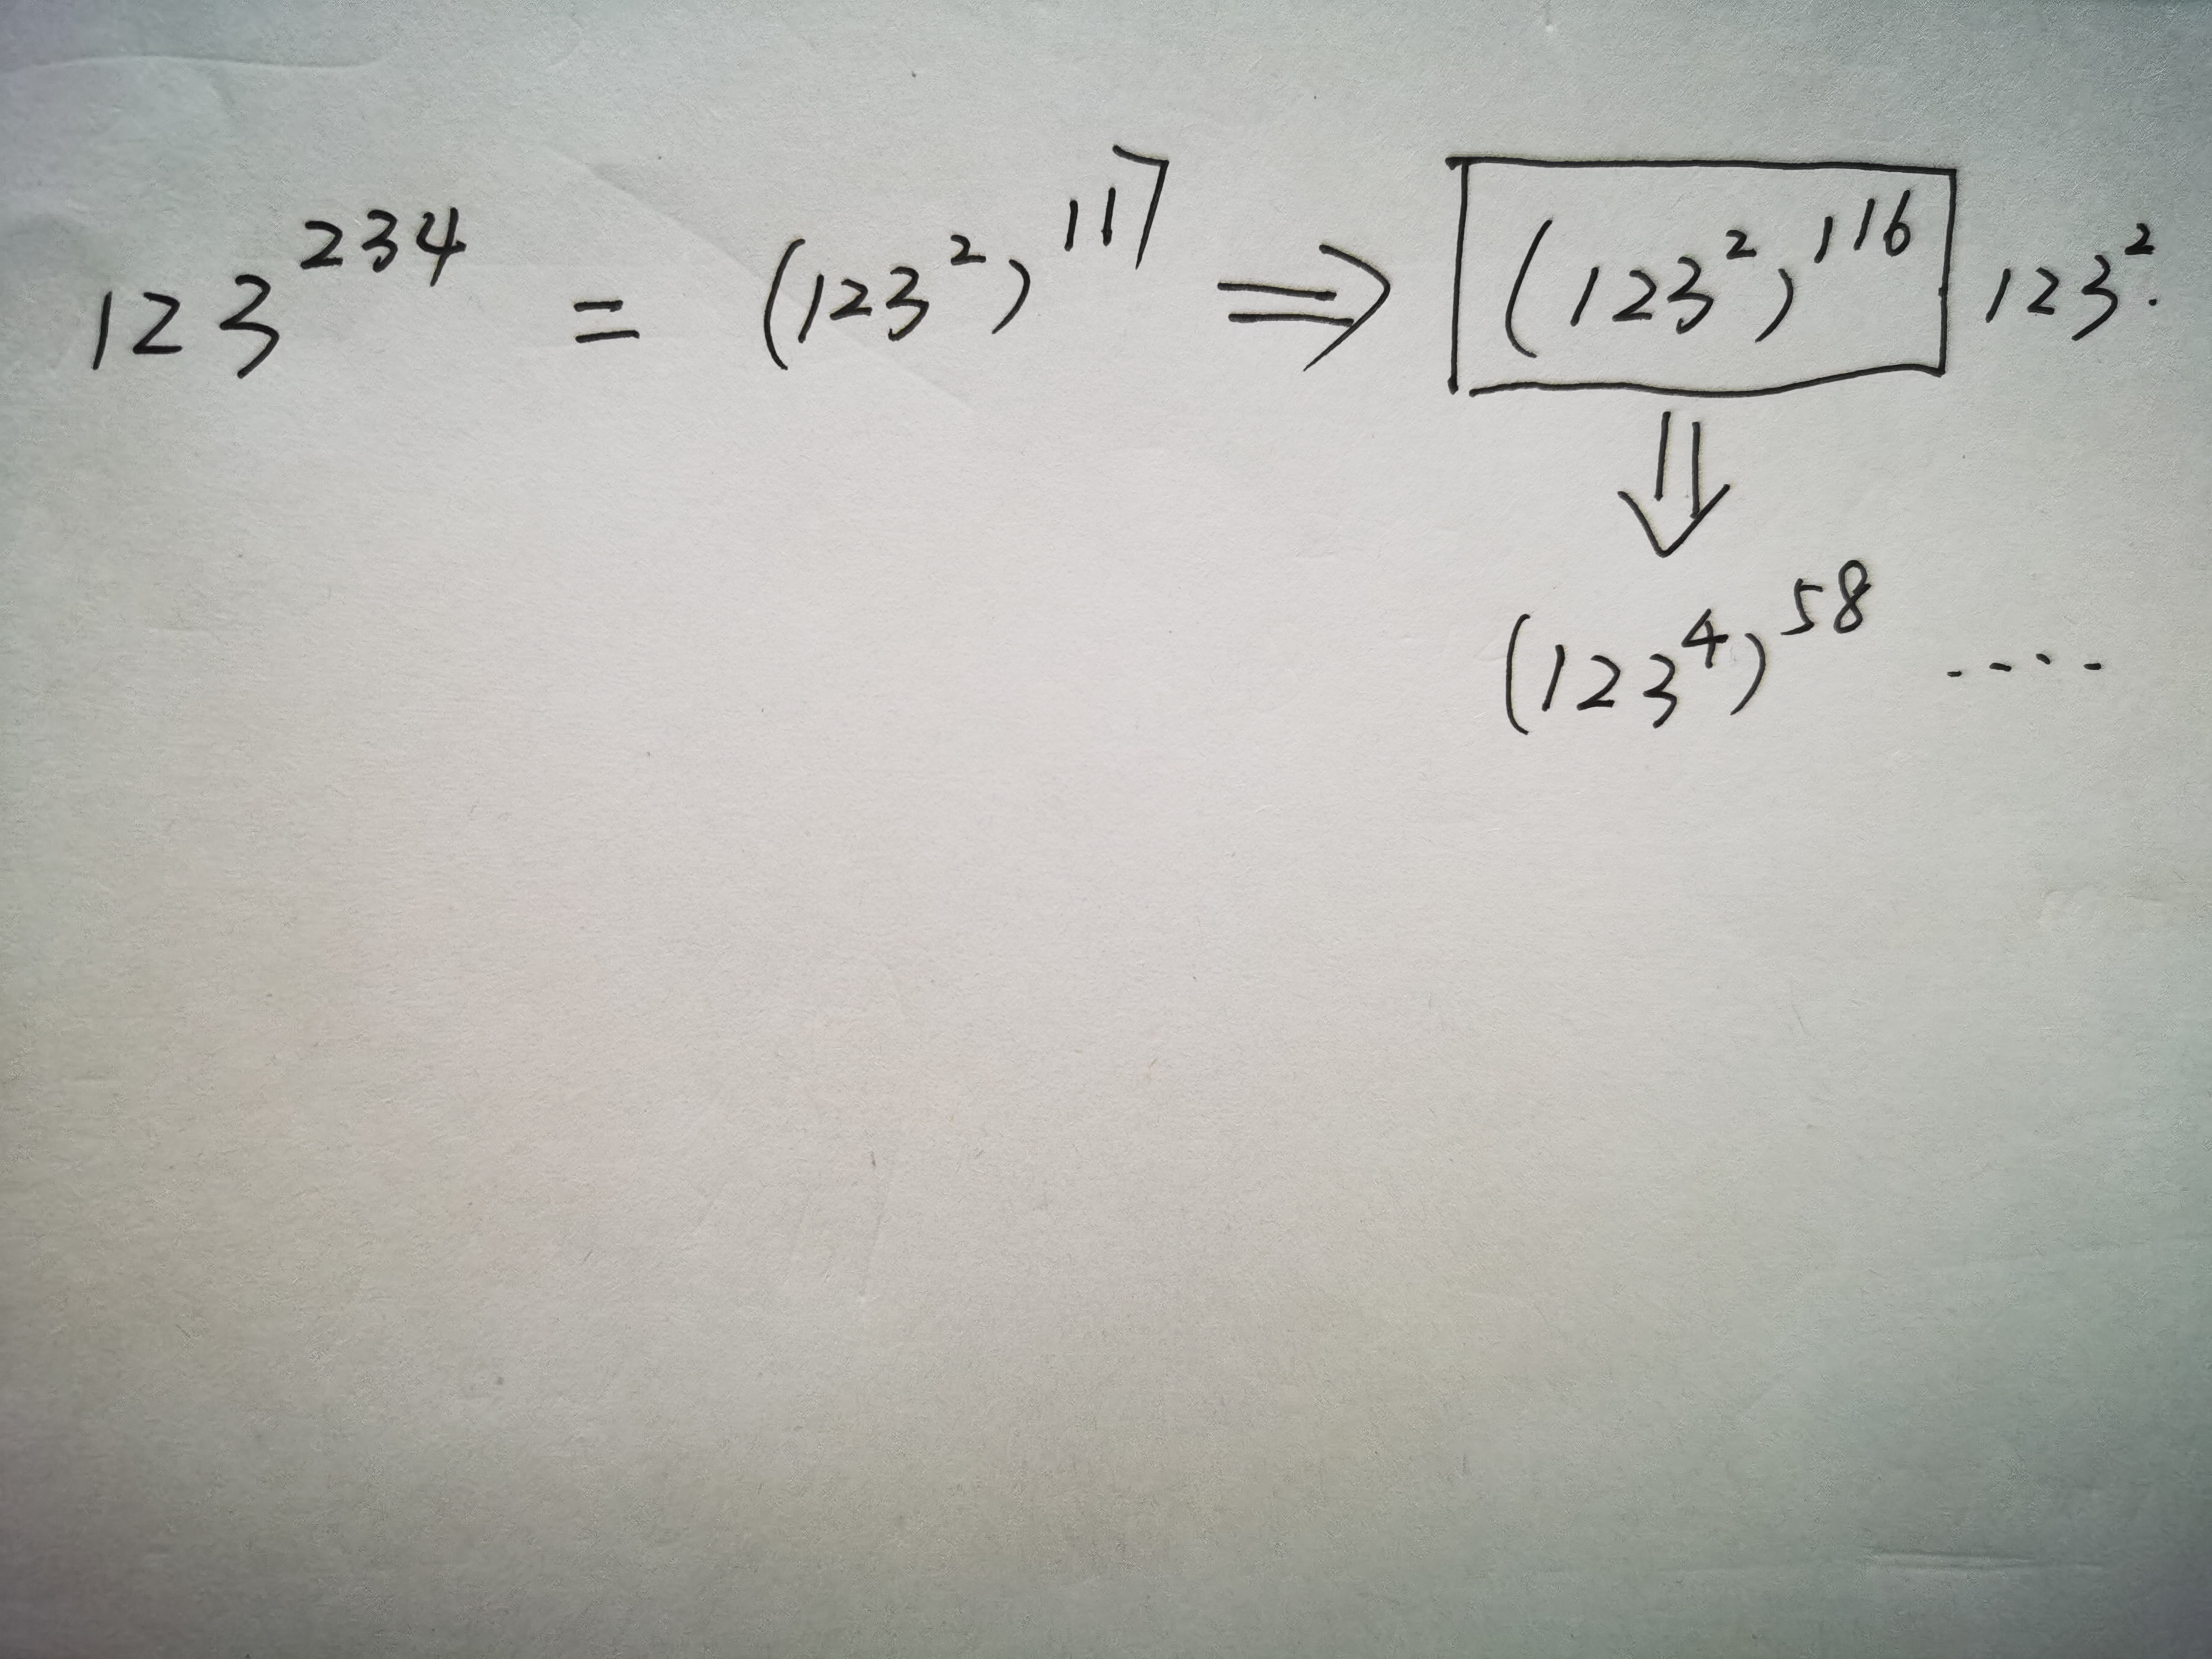 123²³⁴ = (123²)¹¹⁷ ⇒ (123²)¹¹⁶ 123².
⇓
(123⁴)⁵⁸ ·····